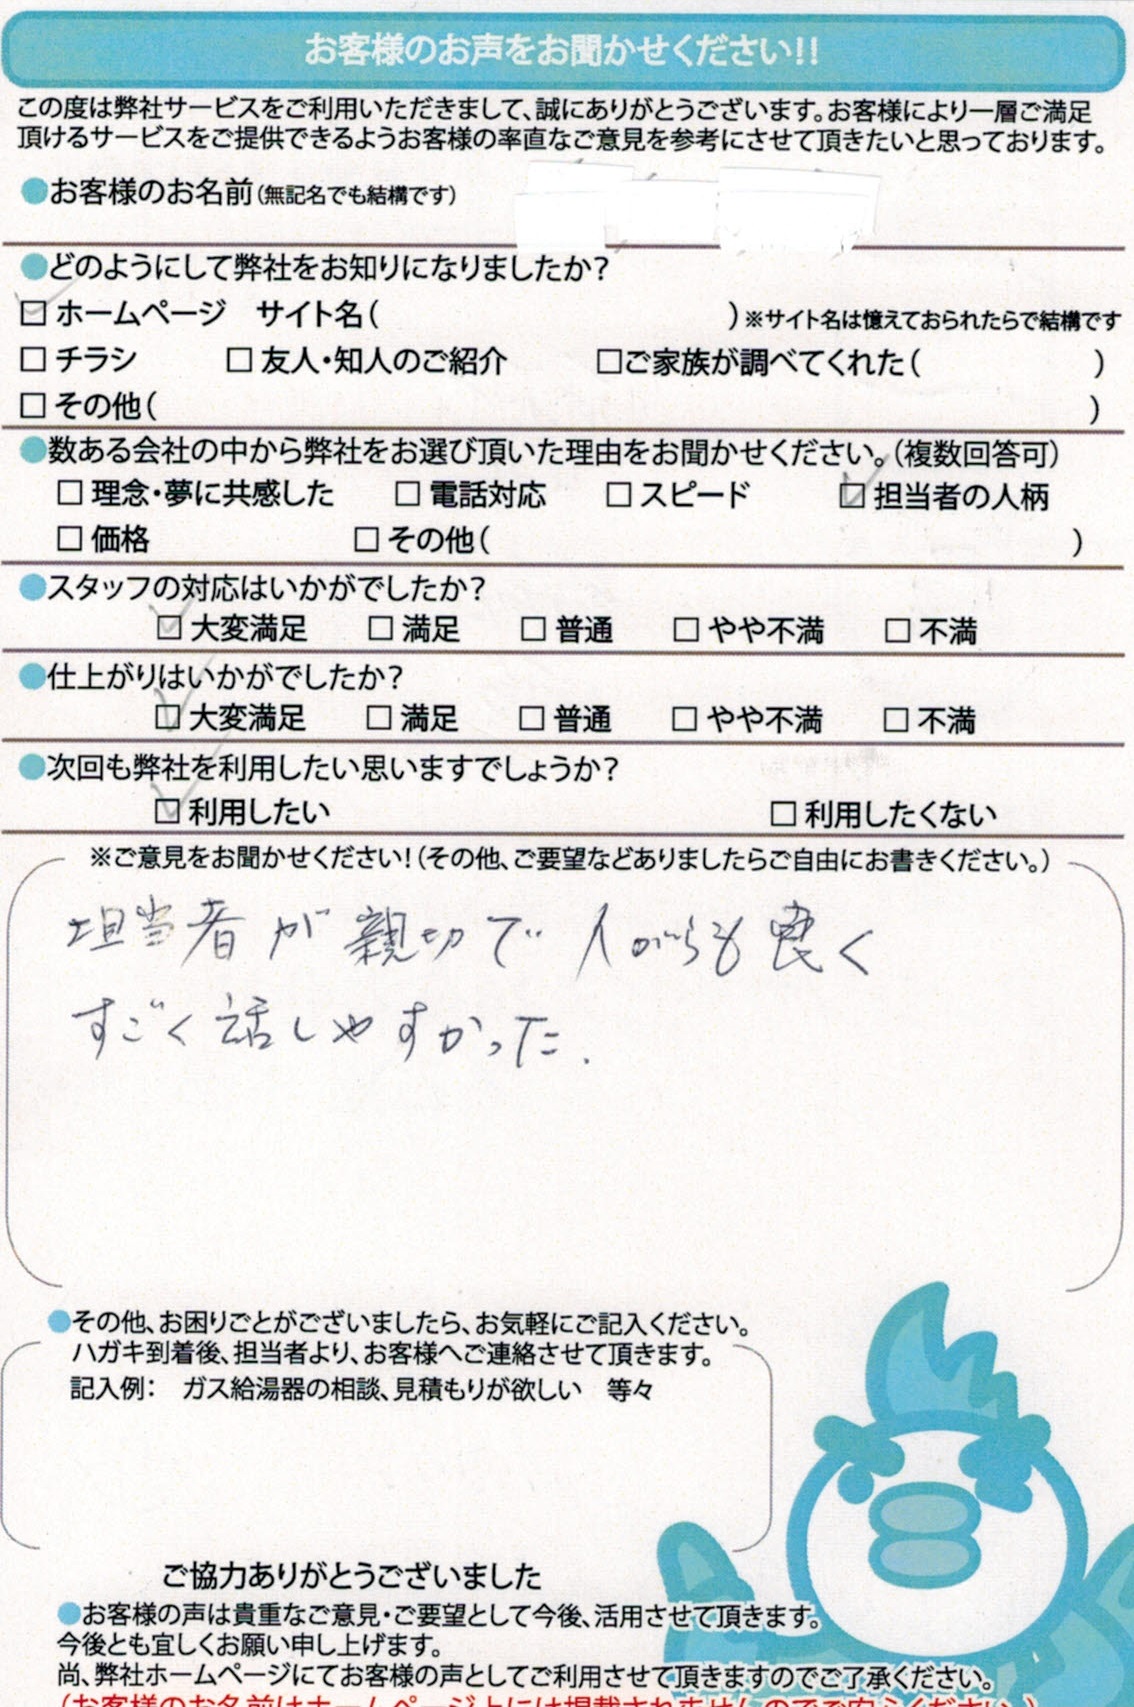 お客様のお声をお聞かせください!!
この度は弊社サービスをご利用いただきまして、誠にありがとうございます。お客様により一層ご満足
頂けるサービスをご提供できるようお客様の率直なご意見を参考にさせて頂きたいと思っております。
●お客様のお名前(無記名でも結構です)
●どのようにして弊社をお知りになりましたか?
☑ ホームページ サイト名( )※サイト名は憶えておられたらで結構です
□ チラシ □ 友人・知人のご紹介 □ご家族が調べてくれた( )
□ その他( )
●数ある会社の中から弊社をお選び頂いた理由をお聞かせください。(複数回答可)
□ 理念・夢に共感した □ 電話対応 □ スピード ☑ 担当者の人柄
□ 価格 □ その他( )
●スタッフの対応はいかがでしたか?
☑ 大変満足 □ 満足 □ 普通 □ やや不満 □ 不満
●仕上がりはいかがでしたか?
☑ 大変満足 □ 満足 □ 普通 □ やや不満 □ 不満
●次回も弊社を利用したい思いますでしょうか?
☑ 利用したい □ 利用したくない
※ご意見をお聞かせください!(その他、ご要望などありましたらご自由にお書きください。)
担当者が親切で人がらも良く
すごく話しやすかった.
●その他、お困りごとがございましたら、お気軽にご記入ください。
ハガキ到着後、担当者より、お客様へご連絡させて頂きます。
記入例: ガス給湯器の相談、見積もりが欲しい 等々
ご協力ありがとうございました
●お客様の声は貴重なご意見・ご要望として今後、活用させて頂きます。
今後とも宜しくお願い申し上げます。
尚、弊社ホームページにてお客様の声としてご利用させて頂きますのでご了承ください。
(お客様のお名前はホームページ上には掲載されませんのでご安心ください。)